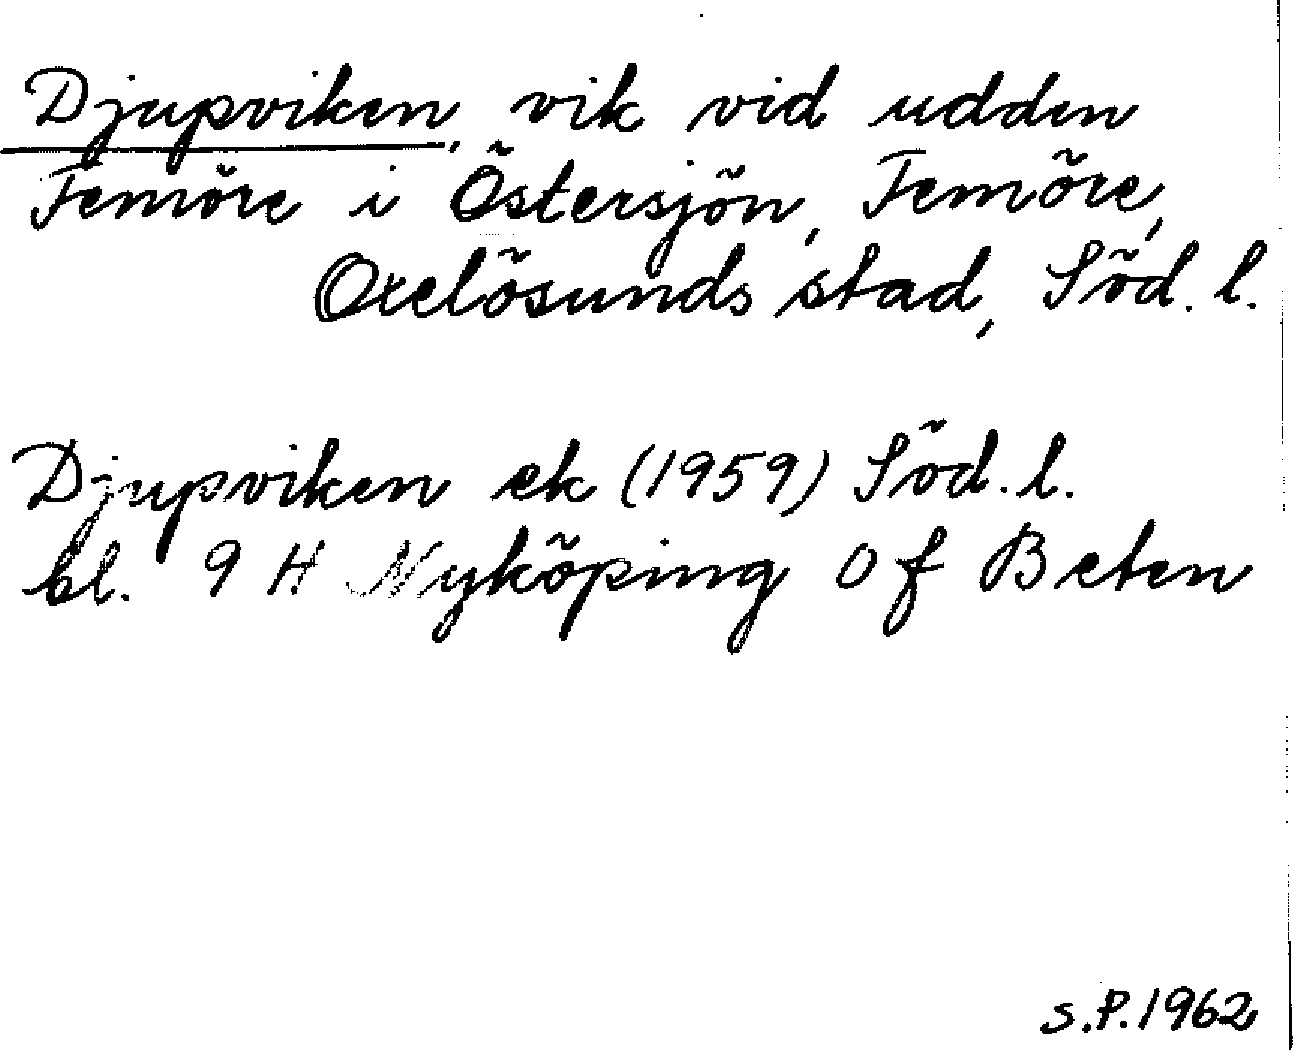 Djupviken, vik vid udden
Femöre i Östersjön, Femöre,
Oxelösunds stad, Söd. l.
Djupviken ek (1959) Söd. l.
bl. 9 H Nyköping 0 f Beten
S.P. 1962